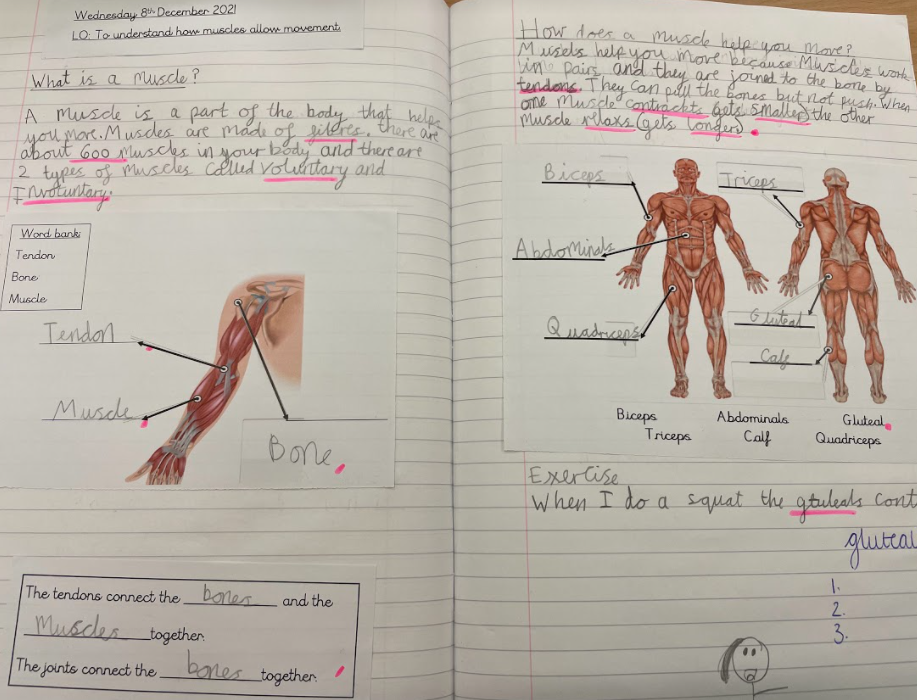 Wednesday 8th December 2021
LO: To understand how muscles allow movement.
What is a muscle?
A muscle is a part of the body that helps
you move. Muscles are made of fiberes. there are
about 600 muscles in your body and there are
2 types of muscles called voluntary and
Involuntary.
Word bank
Tendon
Bone
Muscle
Tendon
Muscle
Bone
The tendons connect the bones and the
Muscles together.
The joints connect the bones together.
How does a muscle help you move?
Musels help you move because Muscles work
in pairs and they are joined to the bone by
tendons. They can pull the bones but not push. When
one muscle contrackts (gets smaller) the other
muscle relaxs (gets longer).
Biceps
Triceps
Abdominals
Quadriceps
Gluteal
Calf
Biceps Abdominals Gluteal
Triceps Calf Quadriceps
Exercise
When I do a squat the gluleals cont
gluteal
1.
2.
3.